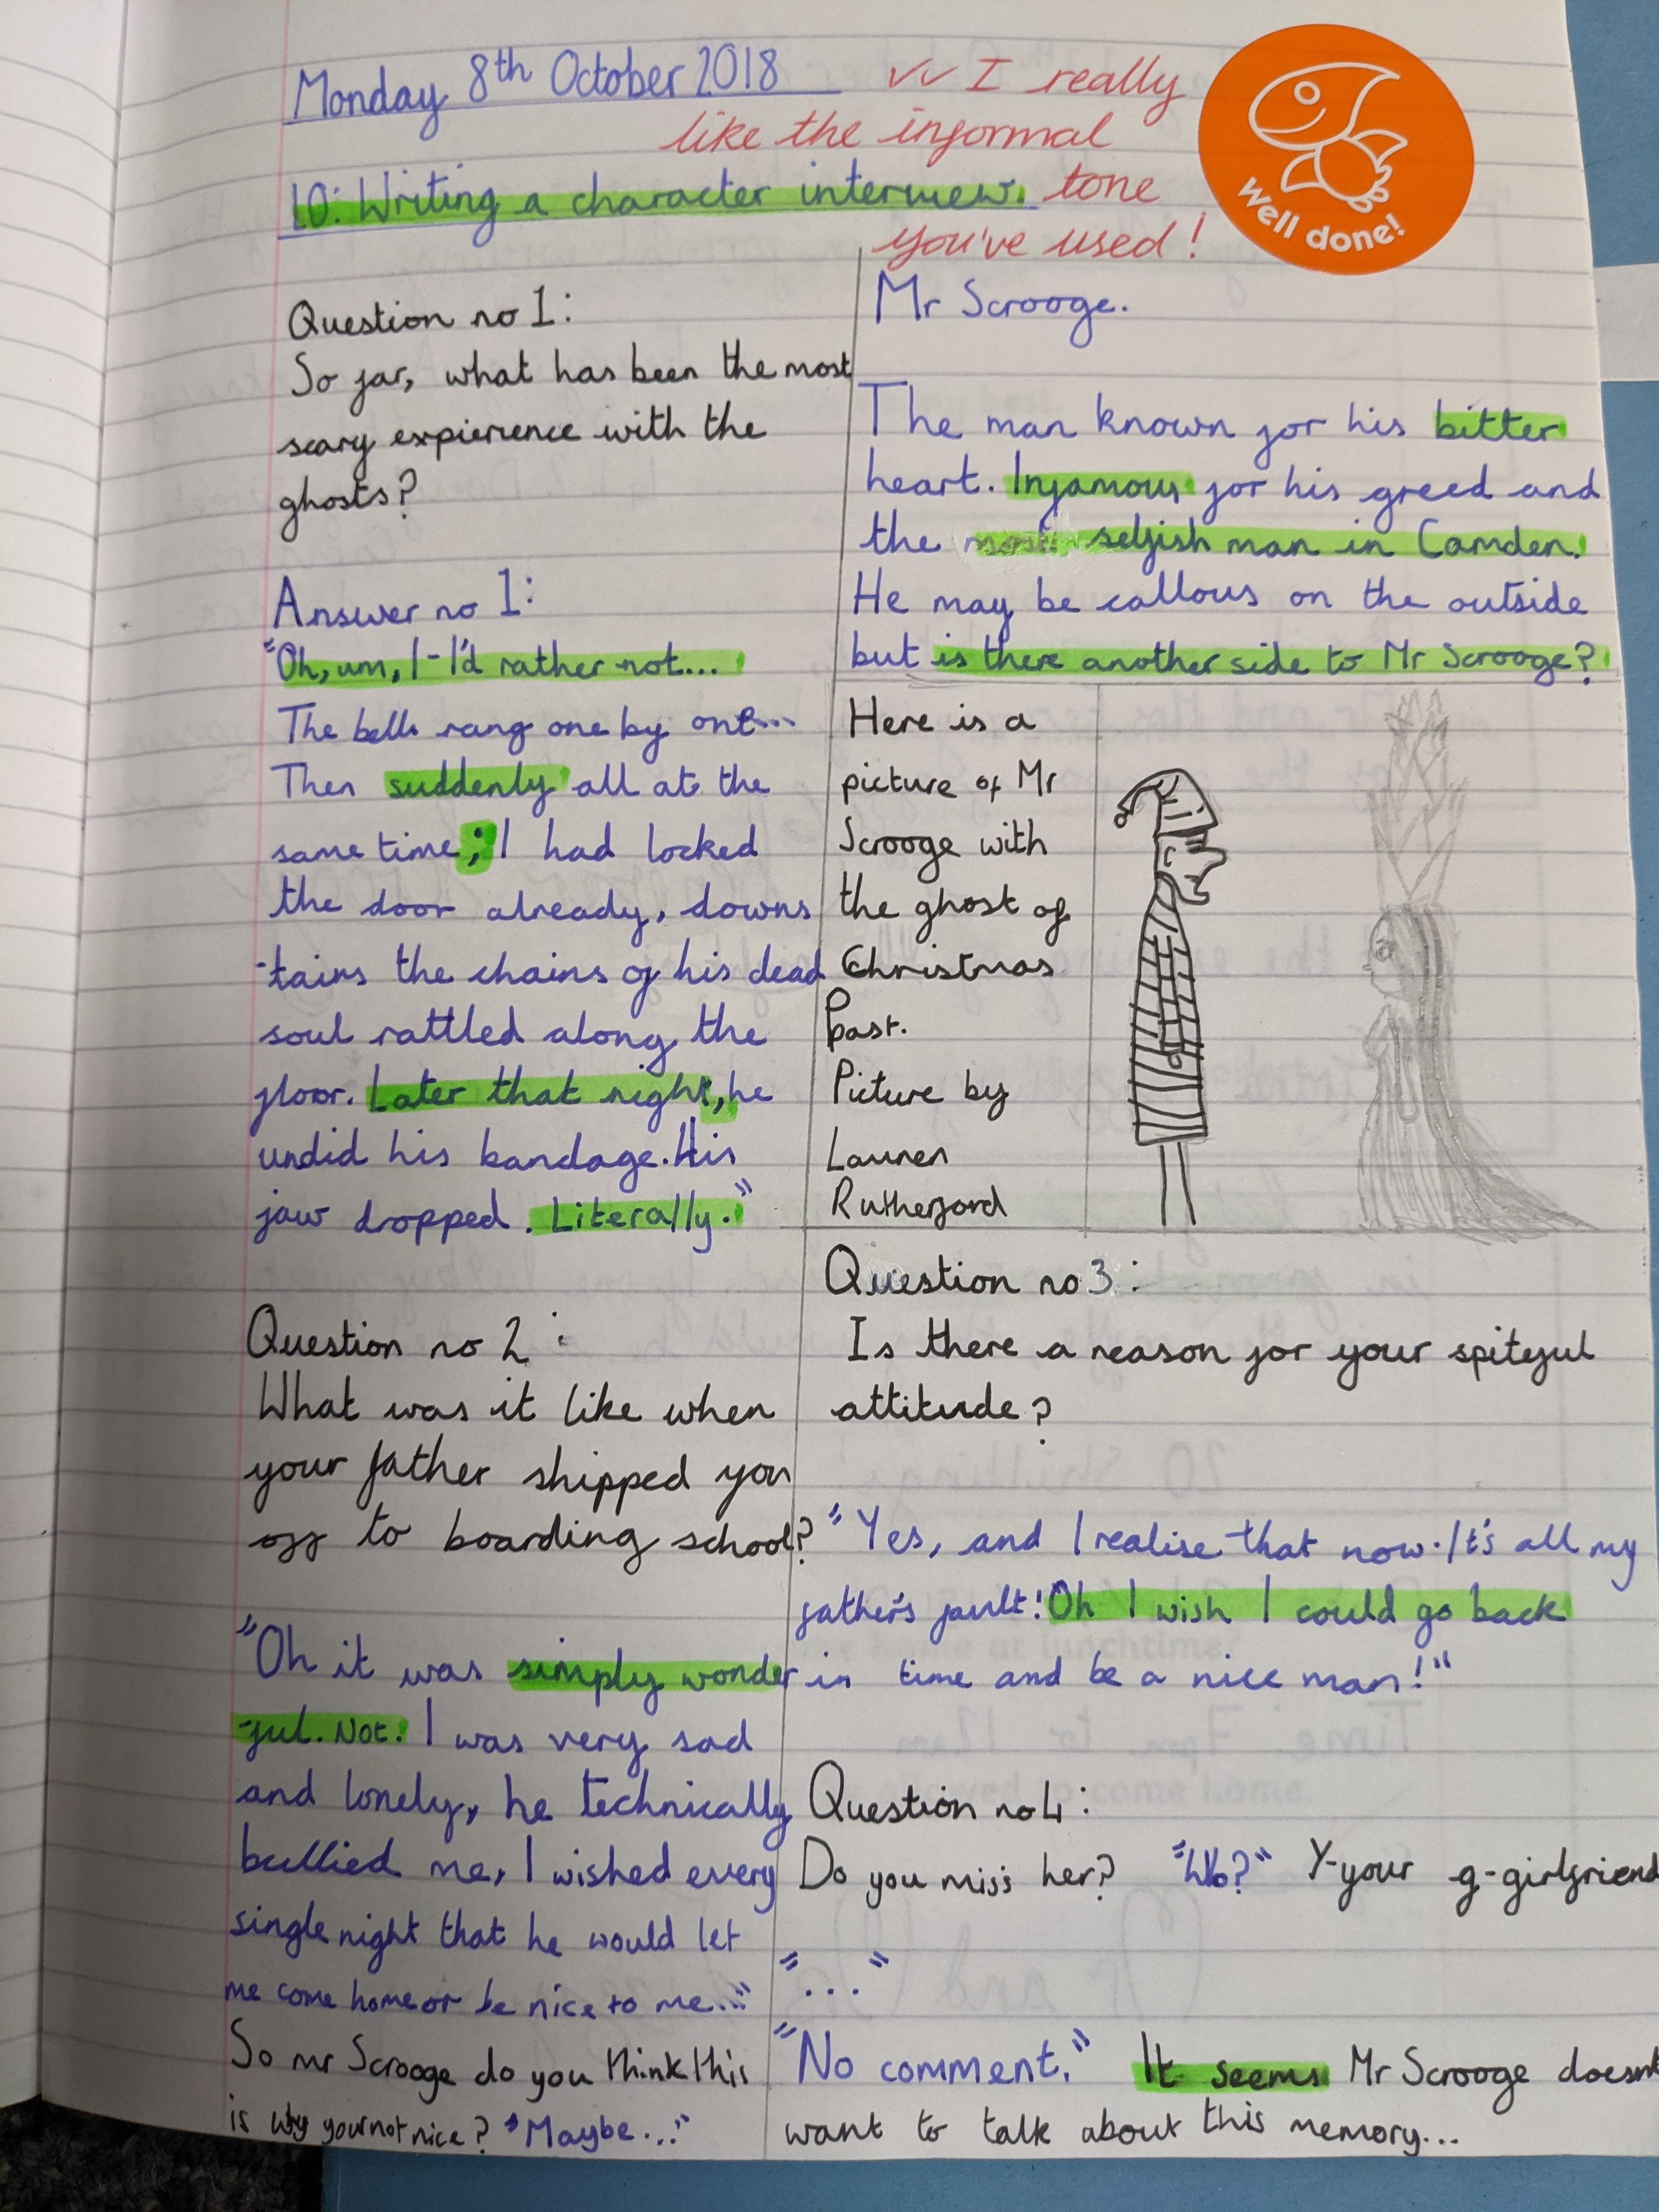 Monday 8th October 2018
✓✓ I really
like the informal
tone
you've used!
Well done!
LO: Writing a character interview.
Question no 1:
So far, what has been the most
scary expierience with the
ghosts?
Answer no 1:
"Oh, um, I-I'd rather not...
The bells rang one by one...
Then suddenly all at the
same time; I had locked
the door already, downs
-tairs the chains of his dead
soul rattled along the
floor. Later that night, he
undid his bandage. His
jaw dropped. Literally."
Question no 2:
What was it like when
your father shipped you
off to boarding school?
"Oh it was simply wonder
-ful. Not. I was very sad
and lonely, he technically
bullied me, I wished every
single night that he would let
me come home or be nice to me..."
So mr Scrooge do you think this
is why your not nice? "Maybe..."
Mr Scrooge.
The man known for his bitter
heart. Infamous for his greed and
the most selfish man in Camden.
He may be callous on the outside
but is there another side to Mr Scrooge?
Here is a
picture of Mr
Scrooge with
the ghost of
Christmas
Past.
Picture by
Lauren
Rutherford
Question no 3:
Is there a reason for your spiteful
attitude?
"Yes, and I realise that now. It's all my
father's fault! Oh I wish I could go back
in time and be a nice man!"
Question no 4:
Do you miss her? "Who?" Y-your g-girlfriend
"..."
"No comment." It seems Mr Scrooge doesnt
want to talk about this memory...